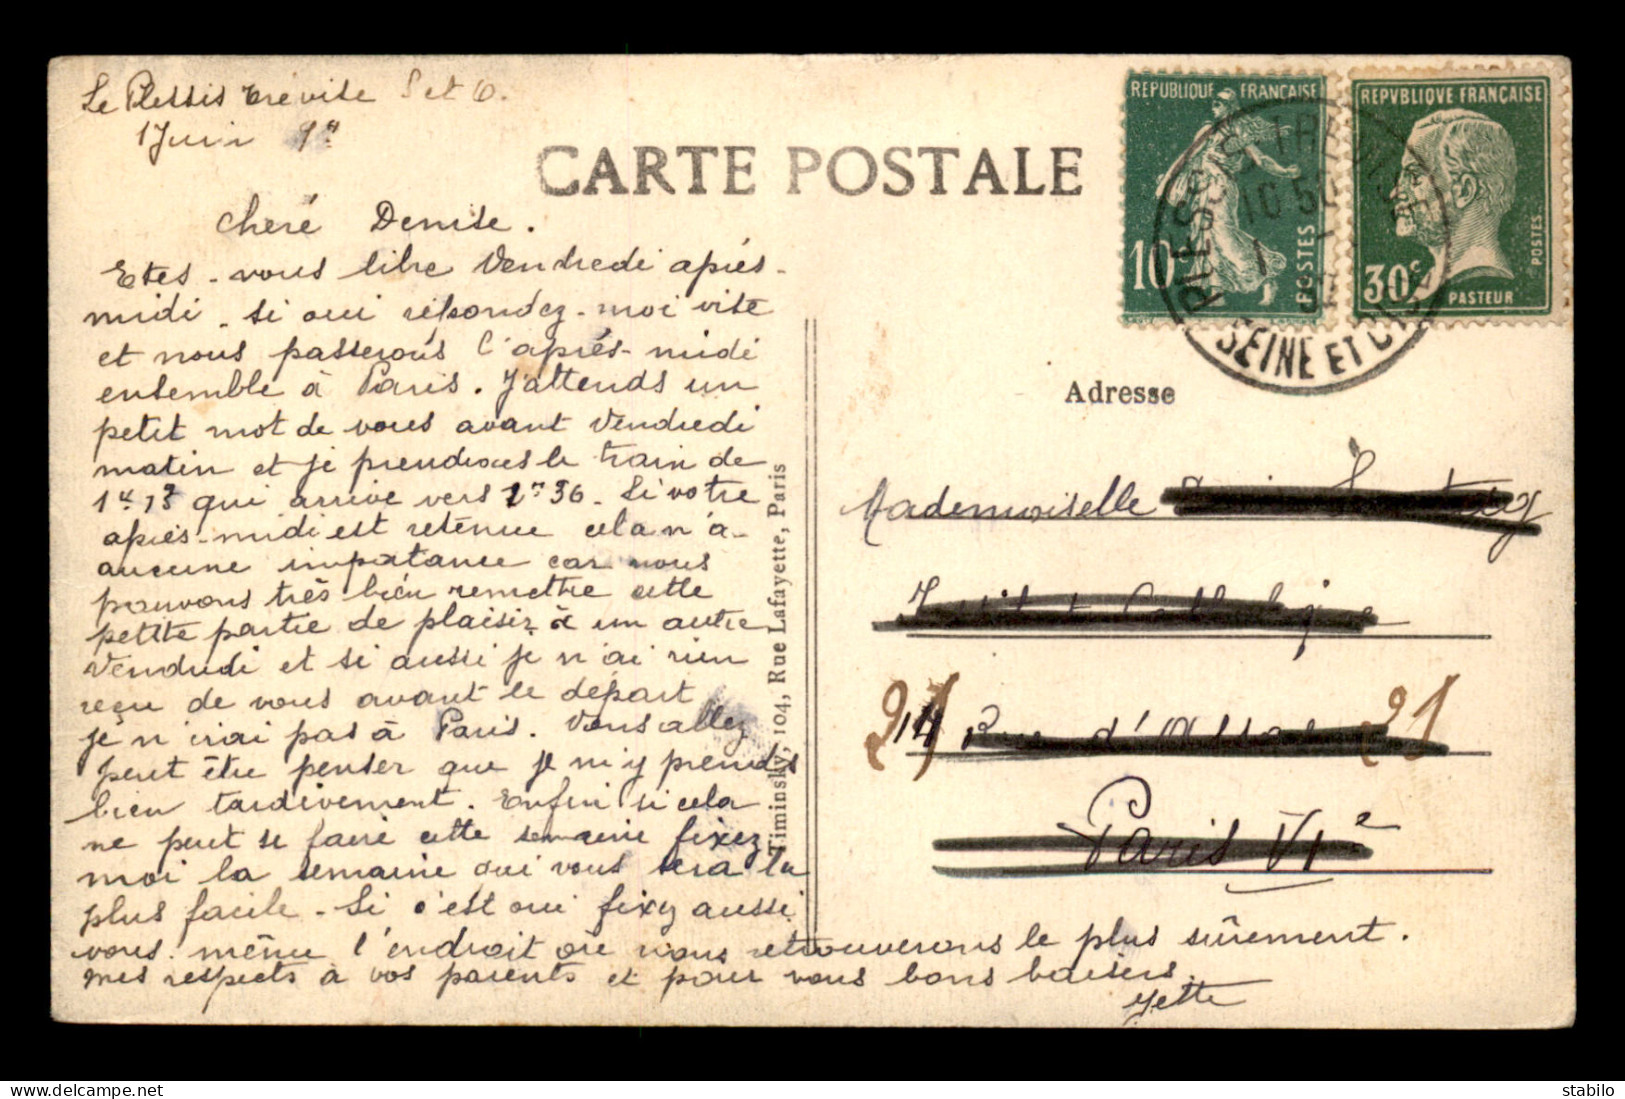 Le Plessis Trévise S et O.
1 Juin
CARTE POSTALE
REPUBLIQUE FRANÇAISE
10c
POSTES
REPVBLIQVE FRANÇAISE
30c
PASTEUR
POSTES
PLESSIS-TREVISE
16 50
SEINE ET OISE
cheré Denise.
Etes-vous libre Vendredi après-
midi. si oui répondez-moi vite
et nous passerons l'après-midi
ensemble à Paris. J'attends un
petit mot de vous avant Vendredi
matin et je prendrais le train de
1h 13 qui arrive vers 1h 36. Si votre
après-midi est retenue cela n'a
aucune importance car nous
pouvons très bien remettre cette
petite partie de plaisir à un autre
Vendredi et si aussi je n'ai rien
reçu de vous avant le départ
je n'irai pas à Paris. Vous allez
peut être penser que je m'y prends
bien tardivement. Enfin si cela
ne peut se faire cette semaine fixez
moi la semaine qui vous sera la
plus facile. Si c'est oui fixez aussi
vous même l'endroit où nous retrouverons le plus sûrement.
mes respects à vos parents et pour vous bons baisers.
Yette
Timinsky, 104, Rue Lafayette, Paris
Adresse
Mademoiselle
Institut Catholique
21 Rue d'Assas 21
Paris VIe
stabilo